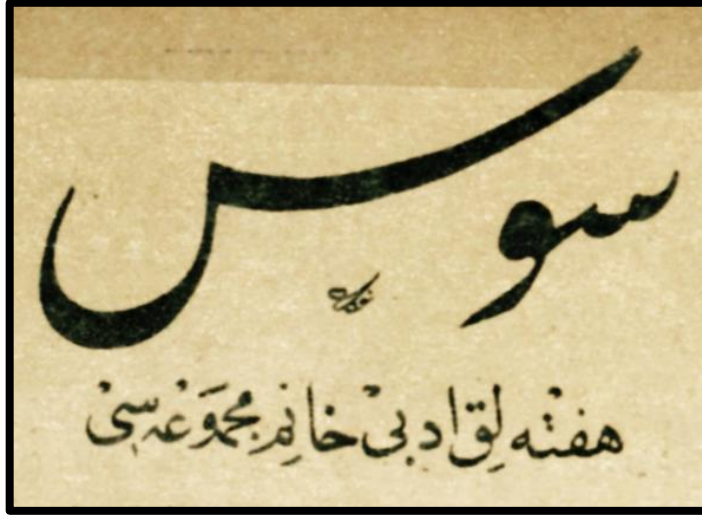 سوس
هفته‌لق ادبی خانم مجموعه‌سی